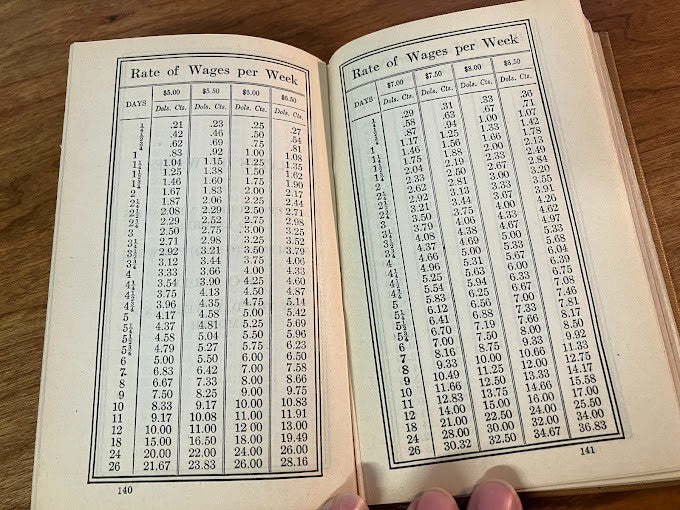 Rate of Wages per Week
$5.00 $5.50 $6.00 $6.50
DAYS Dols. Cts. Dols. Cts. Dols. Cts. Dols. Cts.
¼ .21 .23 .25 .27
½ .42 .46 .50 .54
¾ .62 .69 .75 .81
1 .83 .92 1.00 1.08
1¼ 1.04 1.15 1.25 1.35
1½ 1.25 1.38 1.50 1.62
1¾ 1.46 1.60 1.75 1.90
2 1.67 1.83 2.00 2.17
2¼ 1.87 2.06 2.25 2.44
2½ 2.08 2.29 2.50 2.71
2¾ 2.29 2.52 2.75 2.98
3 2.50 2.75 3.00 3.25
3¼ 2.71 2.98 3.25 3.52
3½ 2.92 3.21 3.50 3.79
3¾ 3.12 3.44 3.75 4.06
4 3.33 3.66 4.00 4.33
4¼ 3.54 3.90 4.25 4.60
4½ 3.75 4.13 4.50 4.87
4¾ 3.96 4.35 4.75 5.14
5 4.17 4.58 5.00 5.42
5¼ 4.37 4.81 5.25 5.69
5½ 4.58 5.04 5.50 5.96
5¾ 4.79 5.27 5.75 6.23
6 5.00 5.50 6.00 6.50
7 5.83 6.42 7.00 7.58
8 6.67 7.33 8.00 8.66
9 7.50 8.25 9.00 9.75
10 8.33 9.17 10.00 10.83
11 9.17 10.08 11.00 11.91
12 10.00 11.00 12 00 13.00
18 15.00 16.50 18.00 19.49
24 20.00 22.00 24.00 26.00
26 21.67 23.83 26.00 28.16
140
Rate of Wages per Week
$7.00 $7.50 $8.00 $8.50
DAYS Dols. Cts. Dols. Cts. Dols. Cts. Dols. Cts.
¼ .29 .31 .33 .36
½ .58 .63 .67 .71
¾ .87 .94 1.00 1.07
1 1.17 1.25 1.33 1.42
1¼ 1.46 1.56 1.66 1.78
1½ 1.75 1.88 2.00 2.13
1¾ 2.04 2.19 2.33 2.49
2 2.33 2.50 2.67 2.84
2¼ 2.62 2.81 3.00 3.20
2½ 2.92 3.13 3.33 3.55
2¾ 3.21 3.44 3.67 3.91
3 3.50 3.75 4.00 4.26
3¼ 3.79 4.06 4.33 4.62
3½ 4.08 4.38 4.67 4.97
3¾ 4.37 4.69 5.00 5.33
4 4.66 5.00 5.33 5.68
4¼ 4.96 5.31 5.67 6.04
4½ 5.25 5.63 6.00 6.39
4¾ 5.54 5.94 6.33 6.75
5 5.83 6.25 6.67 7.08
5¼ 6.12 6.56 7.00 7.46
5½ 6.41 6.88 7.33 7.81
5¾ 6.70 7.19 7.66 8.17
6 7.00 7.50 8.00 8.50
7 8.16 8.75 9.33 9.92
8 9.33 10.00 10.66 11.33
9 10.49 11.25 12.00 12.75
10 11.66 12.50 13.33 14.17
11 12.83 13.75 14.66 15.58
12 14.00 15.00 16.00 17.00
18 21.00 22.50 24.00 25.50
24 28.00 30.00 32.00 34.00
26 30.32 32.50 34.67 36.83
141